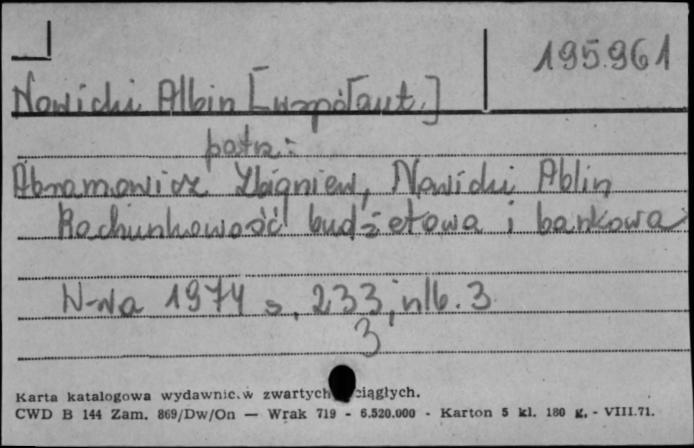 195.961
Nowicki Albin [współaut.]
patrz:
Abramowicz Zbigniew, Nowicki Ablin
Rachunkowość budżetowa i bankowa
W-wa 1974 s. 233, nlb. 3
3
Karta katalogowa wydawnic.w zwartych ciągłych.
CWD B 144 Zam. 869/Dw/On — Wrak 719 - 6.520.000 - Karton 5 kl. 180 g. - VIII.71.